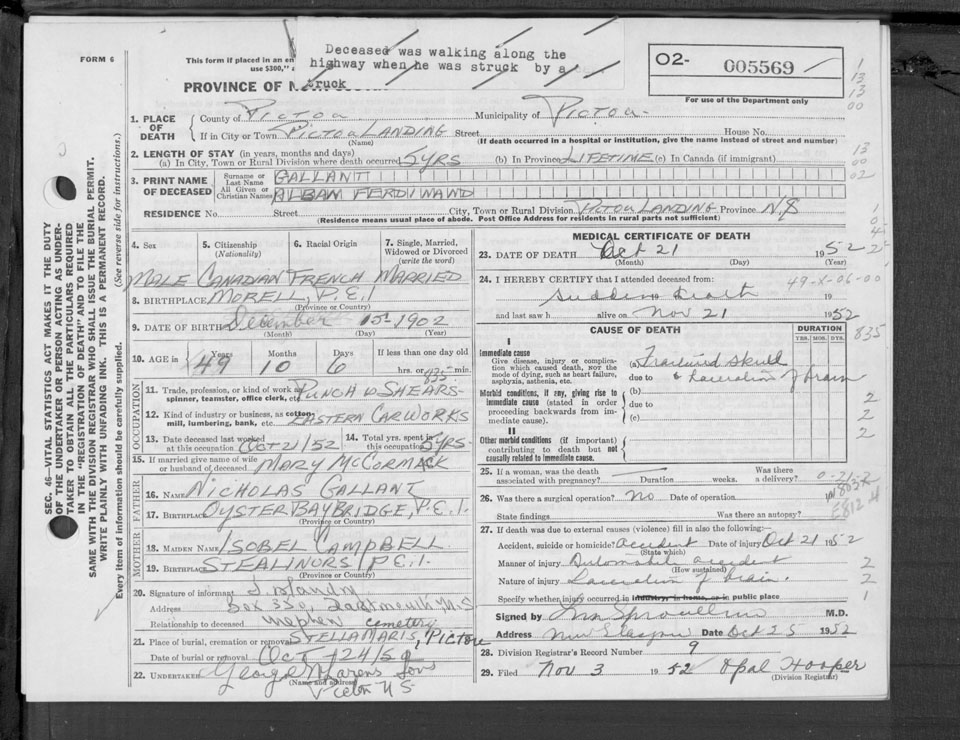 FORM 6
This form if placed in an en
use $300,"
Deceased was walking along the
highway when he was struck by a
truck
PROVINCE OF N
O2- 005569
For use of the Department only
1. PLACE OF DEATH
County of Pictou Municipality of Pictou
If in City or Town Pictou LANDING Street House No.
(Name) (If death occurred in a hospital or institution, give the name instead of street and number)
2. LENGTH OF STAY (in years, months and days)
(a) In City, Town or Rural Division where death occurred 5 yrs (b) In Province LIFETIME (c) In Canada (if immigrant)
3. PRINT NAME OF DECEASED
Surname or Last Name GALLANT
All Given or Christian Names ALBAN FERDINAND
RESIDENCE No. Street City, Town or Rural Division PICTOU LANDING Province N.S
(Residence means usual place of abode. Post Office Address for residents in rural parts not sufficient)
4. Sex 5. Citizenship (Nationality) 6. Racial Origin 7. Single, Married, Widowed or Divorced (write the word)
MALE CANADIAN FRENCH MARRIED
8. BIRTHPLACE MORELL, P.E.I
(Province or Country)
9. DATE OF BIRTH December 15 1902
(Month) (Day) (Year)
10. AGE in Years Months Days If less than one day old
49 10 6 hrs. or min.
835
OCCUPATION
11. Trade, profession, or kind of work as PUNCH & SHEARS
spinner, teamster, office clerk, etc.
12. Kind of industry or business, as cotton mill, lumbering, bank, etc. EASTERN CAR WORKS
13. Date deceased last worked at this occupation Oct 21/52 14. Total yrs. spent in this occupation 5 yrs
15. If married give name of wife or husband of deceased MARY McCORMACK
FATHER
16. NAME NICHOLAS GALLANT
17. BIRTHPLACE OYSTER BAY BRIDGE, P.E.I.
(Province or Country)
MOTHER
18. MAIDEN NAME ISOBEL CAMPBELL
19. BIRTHPLACE P.E.I.
(Province or Country)
20. Signature of informant
Address Box 330, Dartmouth N.S
Relationship to deceased nephew
cemetery
21. Place of burial, cremation or removal STELLA MARIS, PICTOU
Date of burial or removal Oct 24/52
22. UNDERTAKER George
(Name and address)
Pictou N S
MEDICAL CERTIFICATE OF DEATH
23. DATE OF DEATH Oct 21 1952
(Month) (Day) (Year)
24. I HEREBY CERTIFY that I attended deceased from:
Sudden Death 19
and last saw h alive on Nov 21 1952
CAUSE OF DEATH
DURATION
YRS. MOS. DYS.
I
Immediate cause
Give disease, injury or complication which caused death, NOT the mode of dying, such as heart failure, asphyxia, asthenia, etc.
(a) Fractured Skull
due to & Laceration of brain
Morbid conditions, if any, giving rise to immediate cause (stated in order proceeding backwards from immediate cause).
(b)
due to
(c)
II
Other morbid conditions (if important) contributing to death but not causally related to immediate cause.
25. If a woman, was the death associated with pregnancy? Duration weeks. Was there a delivery?
26. Was there a surgical operation? No Date of operation
State findings Was there an autopsy?
27. If death was due to external causes (violence) fill in also the following:-
Accident, suicide or homicide? accident Date of injury Oct 21 1952
(State which)
Manner of injury Automobile accident
(How sustained)
Nature of injury Laceration of brain.
Specify whether injury occurred in industry, in home, or in public place
Signed by M.D.
Address New Glasgow Date Oct 25 1952
28. Division Registrar's Record Number 9
29. Filed Nov 3 1952 Opal Hooper
(Division Registrar)
SEC. 46—VITAL STATISTICS ACT MAKES IT THE DUTY
OF THE UNDERTAKER OR PERSON ACTING AS UNDER-
TAKER TO OBTAIN ALL THE PARTICULARS REQUIRED
IN THE "REGISTRATION OF DEATH" AND TO FILE THE
SAME WITH THE DIVISION REGISTRAR WHO SHALL ISSUE THE BURIAL PERMIT.
WRITE PLAINLY WITH UNFADING INK. THIS IS A PERMANENT RECORD.
Every item of information should be carefully supplied. (See reverse side for instructions.)